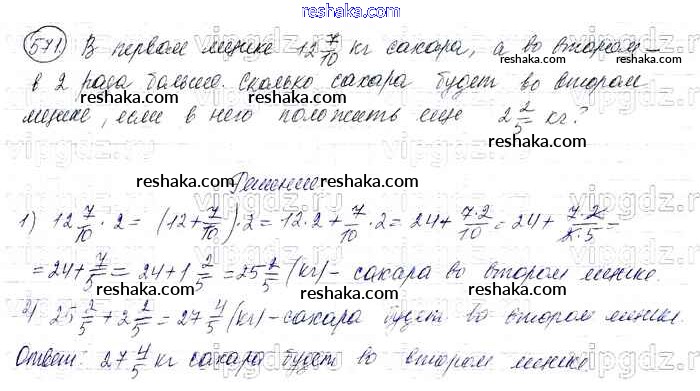 reshaka.com
571 В первом мешке 12 7/10 кг сахара, а во втором –
в 2 раза больше. Сколько сахара будет во втором
мешке, если в него положить еще 2 2/5 кг?
reshaka.com reshaka.com
Решение
reshaka.com reshaka.com reshaka.com
1) 12 7/10 · 2 = (12 + 7/10) · 2 = 12 · 2 + 7/10 · 2 = 24 + 7·2/10 = 24 + 7·2/2·5 =
= 24 + 7/5 = 24 + 1 2/5 = 25 2/5 (кг) – сахара во втором мешке.
reshaka.com reshaka.com reshaka.com
2) 25 2/5 + 2 2/5 = 27 4/5 (кг) – сахара будет во втором мешке.
Ответ: 27 4/5 кг сахара будет во втором мешке.
reshaka.com reshaka.com
vipgdz.ru vipgdz.ru